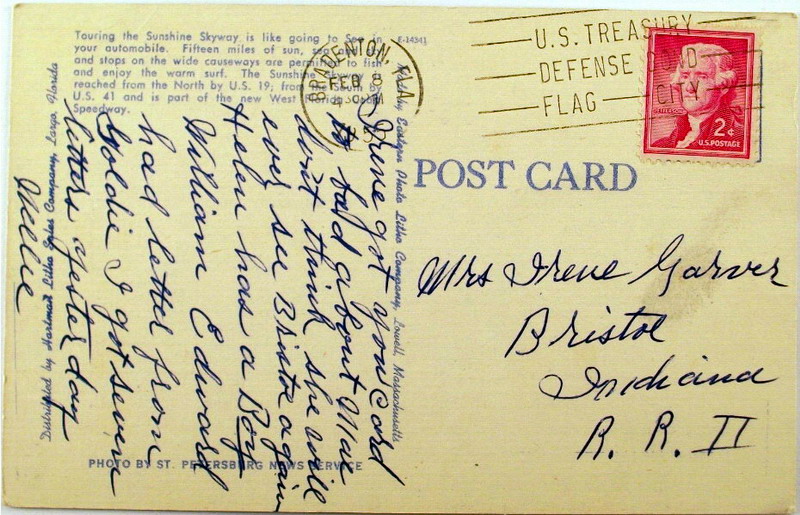 Touring the Sunshine Skyway is like going to Sea in
your automobile. Fifteen miles of sun, sea and
and stops on the wide causeways are permitted to fish
and enjoy the warm surf. The Sunshine Skyway is
reached from the North by U.S. 19; from the South by
U.S. 41 and is part of the new West Florida
Speedway.
E-14341
BRADENTON, FLA.
FEB 8
PM
U.S. TREASURY
DEFENSE BOND
FLAG CITY
2¢
U.S. POSTAGE
POST CARD
Distributed by Hartman Litho Sales Company, Largo, Florida
Eastern Photo Litho Company, Lowell, Massachusetts
Irene got you Card
to bad about Mae
don't think she will
ever see Bristol again
Helen has a Boy
William Edward
had letter from
Goldie I got seven
letters yesterday
Nellie
Mrs Irene Garver
Bristol
Indiana
R. R. II
PHOTO BY ST. PETERSBURG NEWS SERVICE